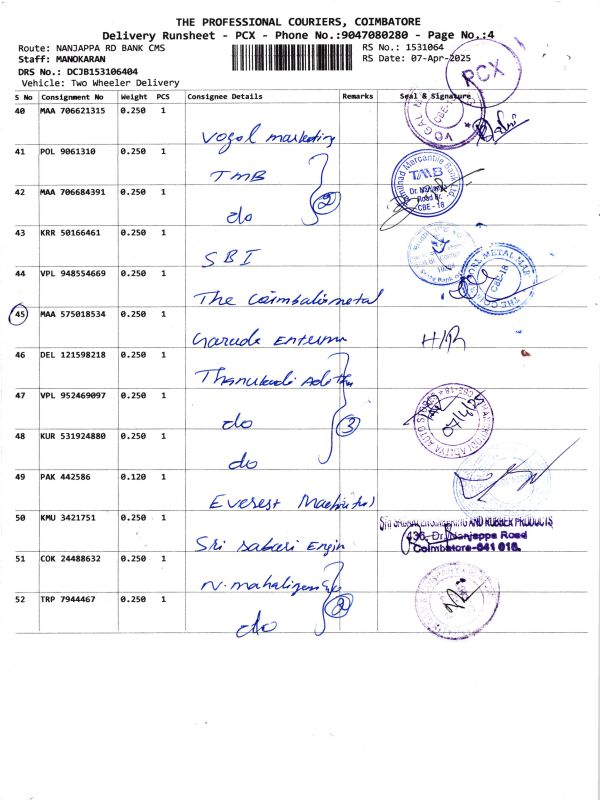 THE PROFESSIONAL COURIERS, COIMBATORE
Delivery Runsheet - PCX - Phone No.:9047080280 - Page No.:4
Route: NANJAPPA RD BANK CMS RS No.: 1531064
Staff: MANOKARAN RS Date: 07-Apr-2025
DRS No.: DCJB153106404
Vehicle: Two Wheeler Delivery
PCX
S No Consignment No Weight PCS Consignee Details Remarks Seal & Signature
40 MAA 706621315 0.250 1
Vogal marketing
41 POL 9061310 0.250 1
TMB
TMB
Dr. Nanjappa
Road Br.
CBE - 18
42 MAA 706684391 0.250 1
do 2
43 KRR 50166461 0.250 1
SBI
44 VPL 948554669 0.250 1
The Coimbatore metal
CBE-18
45 MAA 575018534 0.250 1
Garuda
46 DEL 121598218 0.250 1
47 VPL 952469097 0.250 1
do 3
07/4/25
48 KUR 531924880 0.250 1
do
49 PAK 442586 0.120 1
Everest
50 KMU 3421751 0.250 1
Sri sabari Engin
SRI SABARI ENGINEERING AND RUBBER PRODUCTS
436, Dr. Nanjappa Road
Coimbatore-641 018.
51 COK 24488632 0.250 1
N. mahalingam
52 TRP 7944467 0.250 1
do 2